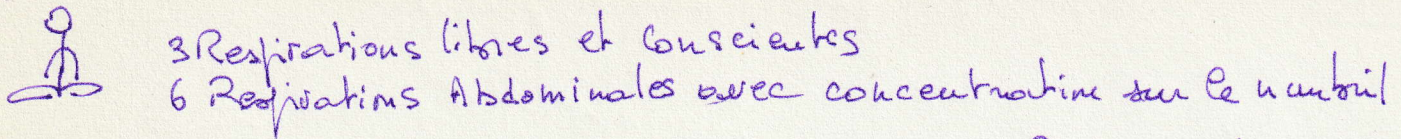 3 Respirations libres et conscientes
6 Respirations Abdominales avec concentration sur le nombril